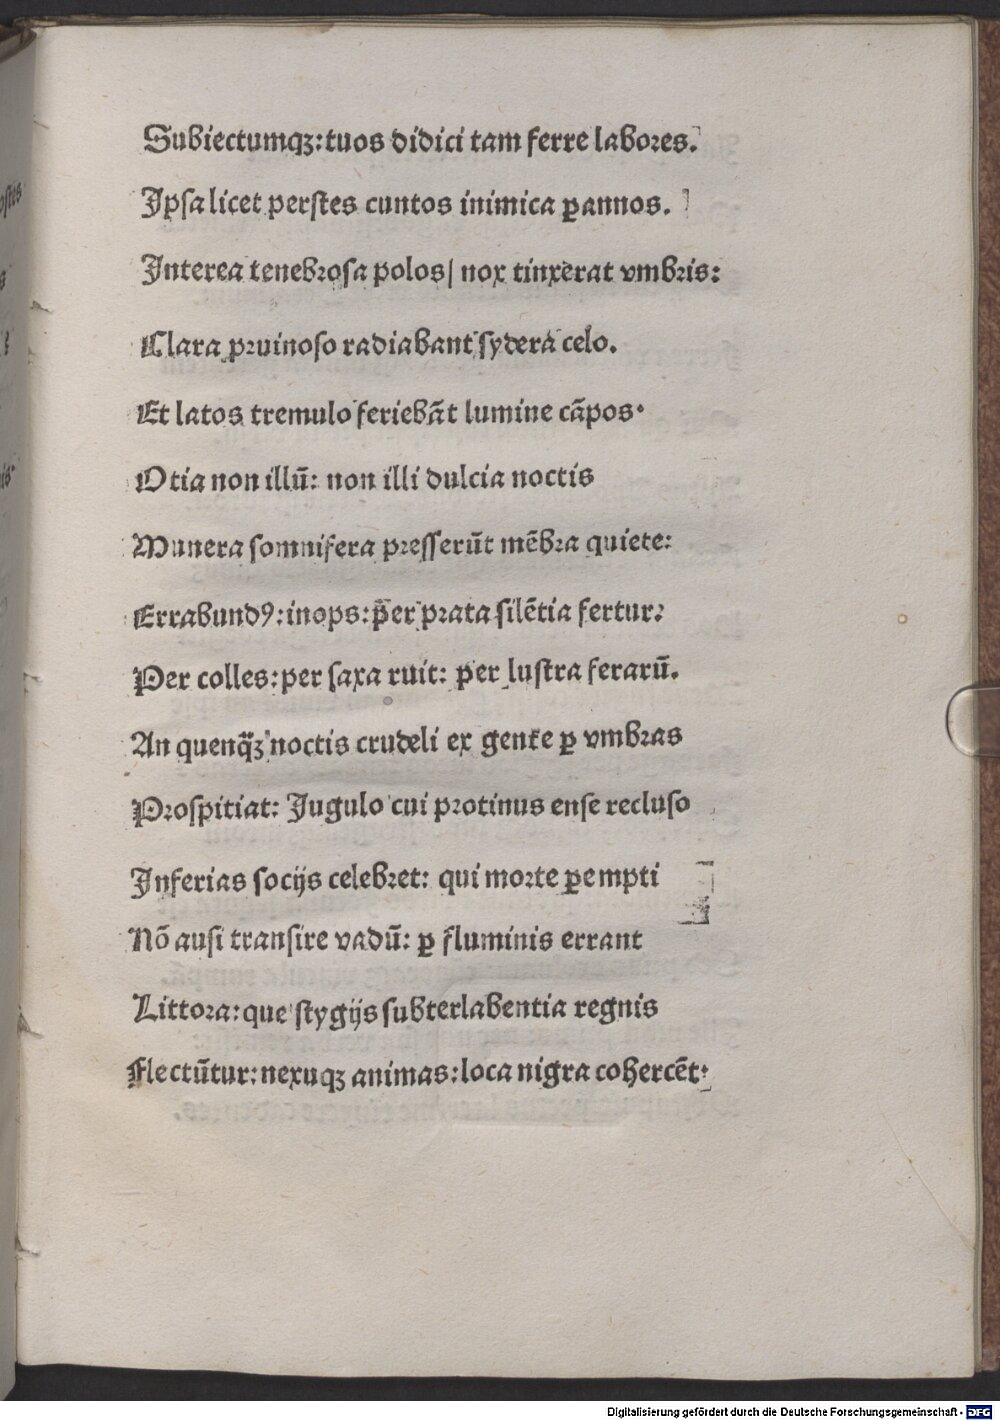 Subiectumqꝫ: tuos didici tam ferre labores.
Ipsa licet perstes cuntos inimica ꝑ annos.
Interea tenebrosa polos/ nox tinxerat vmbris:
Clara pruinoso radiabant sydera celo.
Et latos tremulo feriebãt lumine cãpos.
Otia non illũ: non illi dulcia noctis
Munera somnifera presserũt mẽbra quiete:
Errabundꝰ: inops: p̃er prata silẽtia fertur:
Per colles: per saxa ruit: per lustra ferarũ.
An quenq̃ꝫ noctis crudeli ex gente ꝑ vmbras
Prospitiat: Iugulo cui protinus ense recluso
Inferias socijs celebret: qui morte ꝑempti
Nõ ausi transire vadũ: ꝑ fluminis errant
Littora: que stygijs subterlabentia regnis
Flectũtur: nexuqꝫ animas: loca nigra cohercẽt.
Digitalisierung gefördert durch die Deutsche Forschungsgemeinschaft - DFG